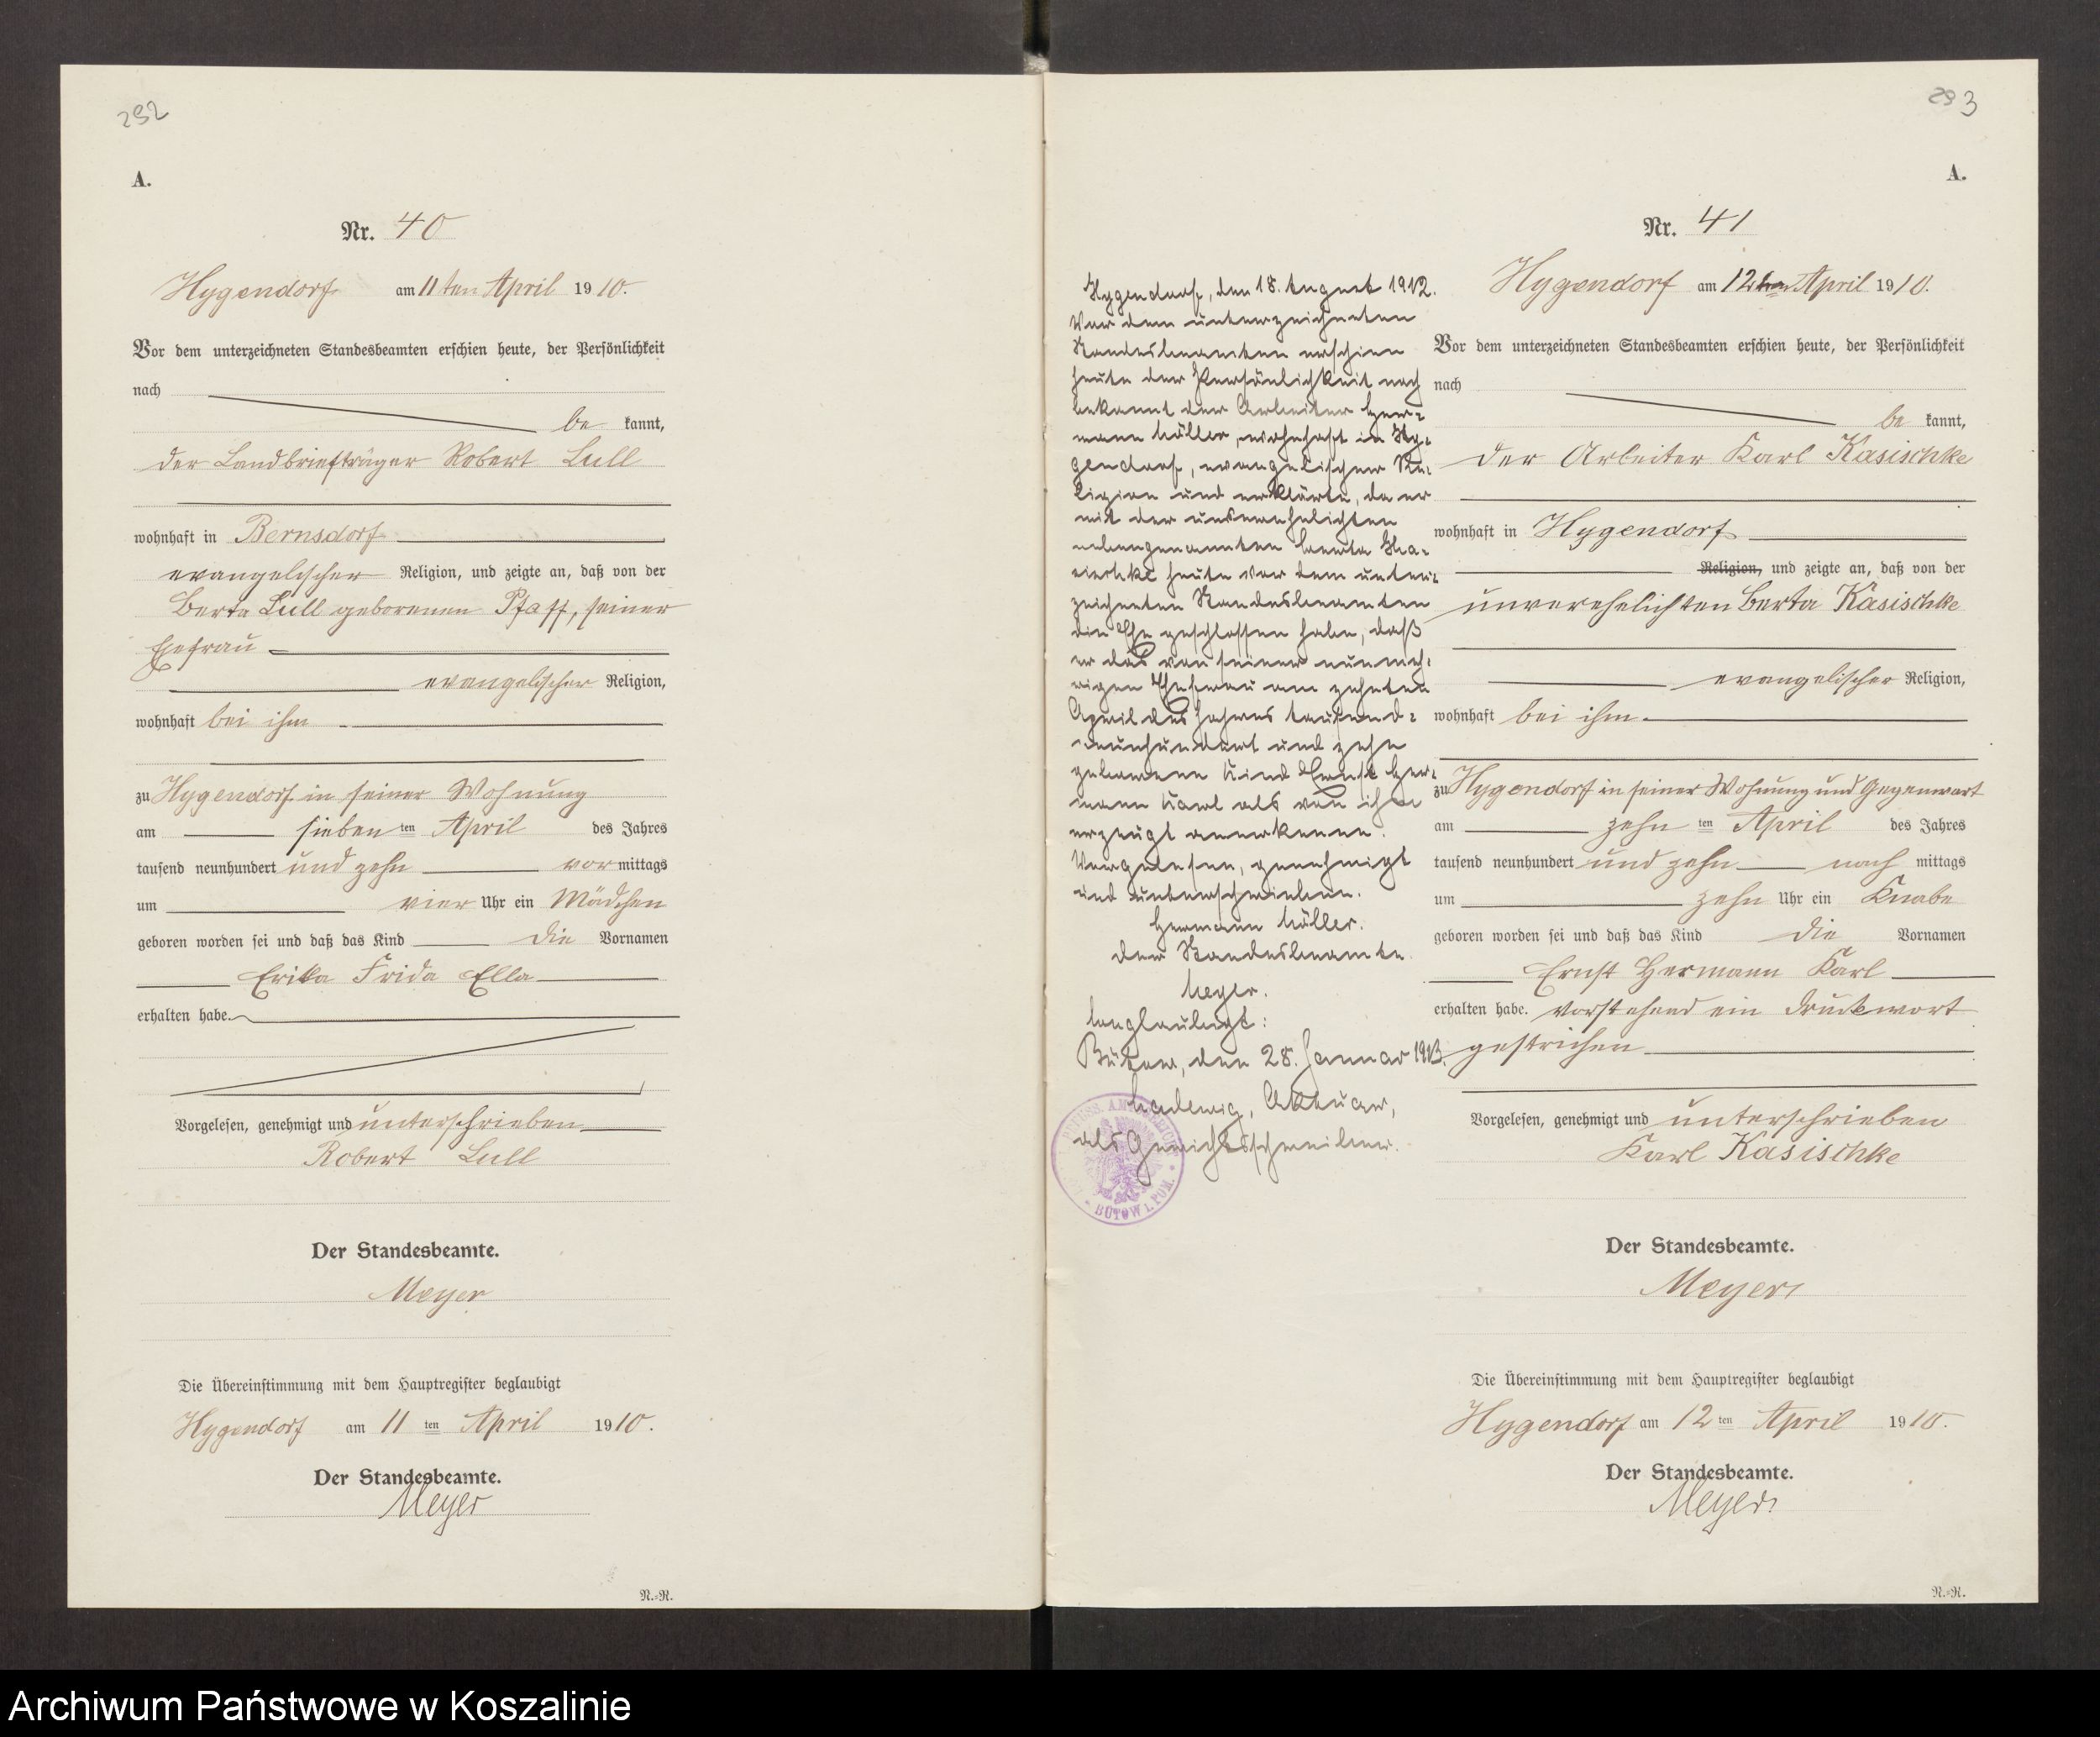 292
A.
Nr. 40
Hygendorf am 11ten April 1910.
Vor dem unterzeichneten Standesbeamten erschien heute, der Persönlichkeit
nach
be kannt,
der Landbriefträger Robert Lull
wohnhaft in Bernsdorf
evangelischer Religion, und zeigte an, daß von der
Berta Lull geborenen Pfaff, seiner
Ehefrau
evangelischer Religion,
wohnhaft bei ihm
zu Hygendorf in seiner Wohnung
am sieben ten April des Jahres
tausend neunhundert und zehn vor mittags
um vier Uhr ein Mädchen
geboren worden sei und daß das Kind die Vornamen
Erika Frida Ella
erhalten habe.
Vorgelesen, genehmigt und unterschrieben
Robert Lull
Der Standesbeamte.
Meyer
Die Übereinstimmung mit dem Hauptregister beglaubigt
Hygendorf am 11 ten April 1910.
Der Standesbeamte.
Meyer
N.=R.
293
A.
Nr. 41
Hygendorf, den 18. August 1912.
Vor dem unterzeichneten
Standesbeamten erschien
heute der Persönlichkeit nach
bekannt der Arbeiter Her=
mann Müller, wohnhaft in Hy=
gendorf, evangelischer Re=
ligion und erklärte, da er
mit der unverehelichten
nebengenannten Berta Ka=
sischke heute vor dem unter=
zeichneten Standesbeamten
die Ehe geschlossen habe, daß
er das von seiner nunmeh=
rigen Ehefrau am zehnten
April des Jahres tausend=
neunhundert und zehn
geborene Kind Ernst Her=
mann Karl als von ihm
erzeugt anerkenne.
Vorgelesen, genehmigt
und unterschrieben.
Hermann Müller.
Der Standesbeamte.
Meyer.
Beglaubigt:
Bütow, den 28. Januar 1913.
Aktuar,
als Gerichtsschreiber.
BÜTOW i. POM.
Hygendorf am 12ten April 1910.
Vor dem unterzeichneten Standesbeamten erschien heute, der Persönlichkeit
nach
be kannt,
der Arbeiter Karl Kasischke
wohnhaft in Hygendorf
Religion, und zeigte an, daß von der
unverehelichten Berta Kasischke
evangelischer Religion,
wohnhaft bei ihm
zu Hygendorf in seiner Wohnung und Gegenwart
am zehn ten April des Jahres
tausend neunhundert und zehn nach mittags
um zehn Uhr ein Knabe
geboren worden sei und daß das Kind die Vornamen
Ernst Hermann Karl
erhalten habe. Vorstehend ein Druckwort
gestrichen
Vorgelesen, genehmigt und unterschrieben
Karl Kasischke
Der Standesbeamte.
Meyer
Die Übereinstimmung mit dem Hauptregister beglaubigt
Hygendorf am 12 ten April 1910.
Der Standesbeamte.
Meyer
N.=R.
Archiwum Państwowe w Koszalinie